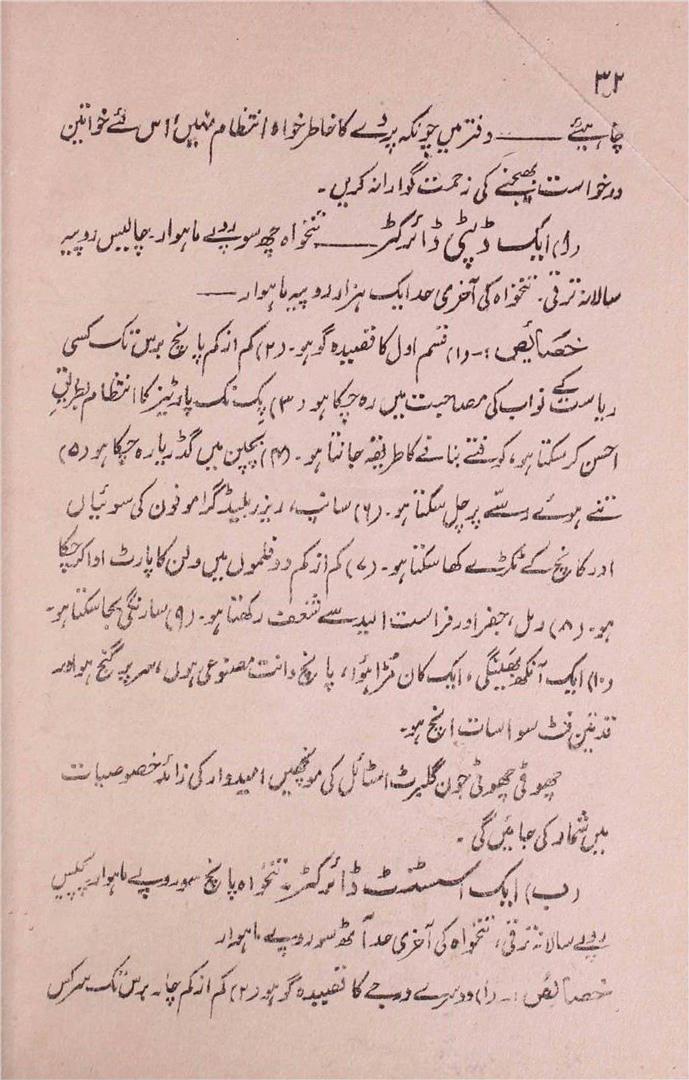 ۳۲
چاہیئے ــــــ دفتر میں چونکہ پردے کا خاطر خواہ انتظام نہیں اس لئے خواتین
درخواست بھیجنے کی زحمت گوارا نہ کریں۔
(ا) ایک ڈپٹی ڈائرکٹر ــــــ تنخواہ چھ سو روپے ماہوار۔ چالیس روپیہ
سالانہ ترقی۔ تنخواہ کی آخری حد ایک ہزار روپیہ ماہوار ــــــ
خصائص :- (۱) قسم اول کا قصیدہ گو ہو۔ (۲) کم از کم پانچ برس تک کسی
ریاست کے نواب کی مصاحبت میں رہ چکا ہو (۳) پک نک پارٹیز کا انتظام بطریق
احسن کر سکتا ہو، کوفتے بنانے کا طریقہ جانتا ہو۔ (۴) بچپن میں گڈریا رہ چکا ہو (۵)
تنے ہوئے رسّے پر چل سکتا ہو۔ (۶) سانپ، ریزر بلیڈ گراموفون کی سوئیاں
اور کانچ کے ٹکڑے کھا سکتا ہو۔ (۷) کم از کم دو فلموں میں ولن کا پارٹ ادا کر چکا
ہو۔ (۸) رمل، جفر اور فراست الید سے شغف رکھتا ہو۔ (۹) سارنگی بجا سکتا ہو۔
(۱۰) ایک آنکھ بھینگی، ایک کان مُڑا ہوا، پانچ دانت مصنوعی ہوں، سر پر گنج ہو اور
قد تین فٹ سوا سات انچ ہو۔
چھوٹی چھوٹی جون گلبرٹ اسٹائل کی مونچھیں امیدوار کی زائد خصوصیات
میں شمار کی جائیں گی۔
(ب) ایک اسسٹنٹ ڈائرکٹر۔ تنخواہ پانچ سو روپے ماہوار۔ پچیس
روپے سالانہ ترقی، تنخواہ کی آخری حد آٹھ سو روپیہ ماہوار
خصائص :- (۱) دوسرے درجے کا قصیدہ گو ہو (۲) کم از کم چار برس تک سرکس